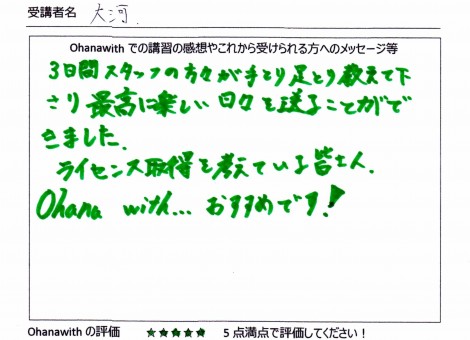 受講者名 大河
Ohanawith での講習の感想やこれから受けられる方へのメッセージ等
3日間スタッフの方々が手とり足とり教えて下
さり最高に楽しい日々を送ることがで
きました.
ライセンス取得を考えている皆さん.
Ohana with... おすすめです!
Ohanawith の評価 ★★★★★ 5 点満点で評価してください!